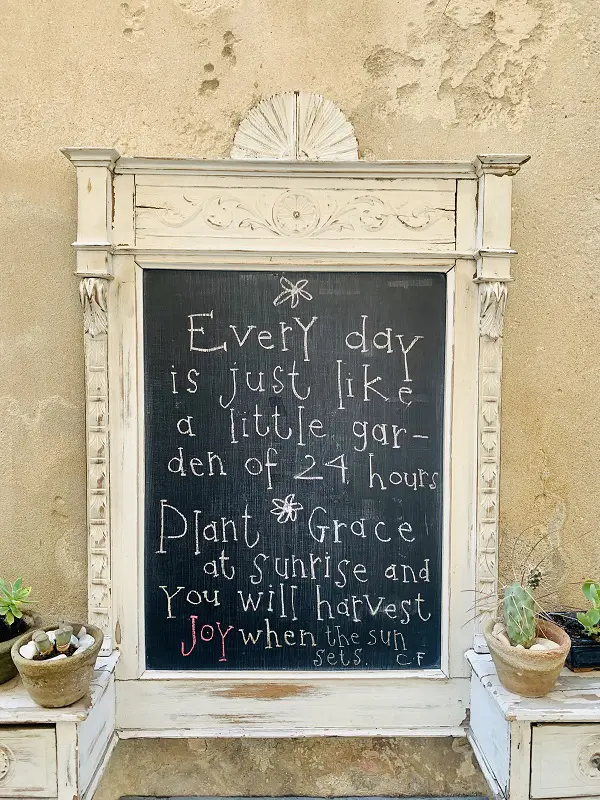 Every day
is just like
a little gar-
den of 24 hours
Plant Grace
at sunrise and
You will harvest
Joy when the sun
sets. C.F